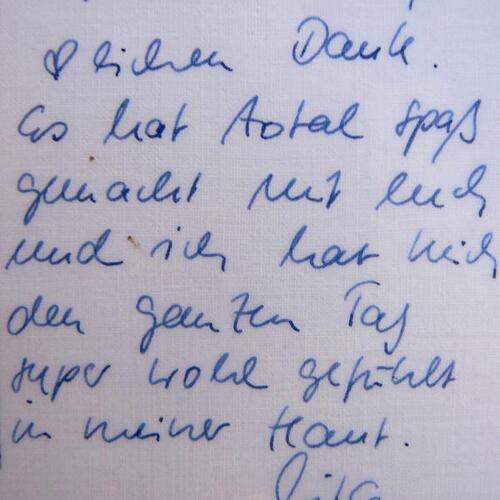 ♡lichen Dank.
Es hat total spaß
gemacht mit euch
und ich hat mich
den ganzen Tag
super wohl gefühlt
in meiner Haut.